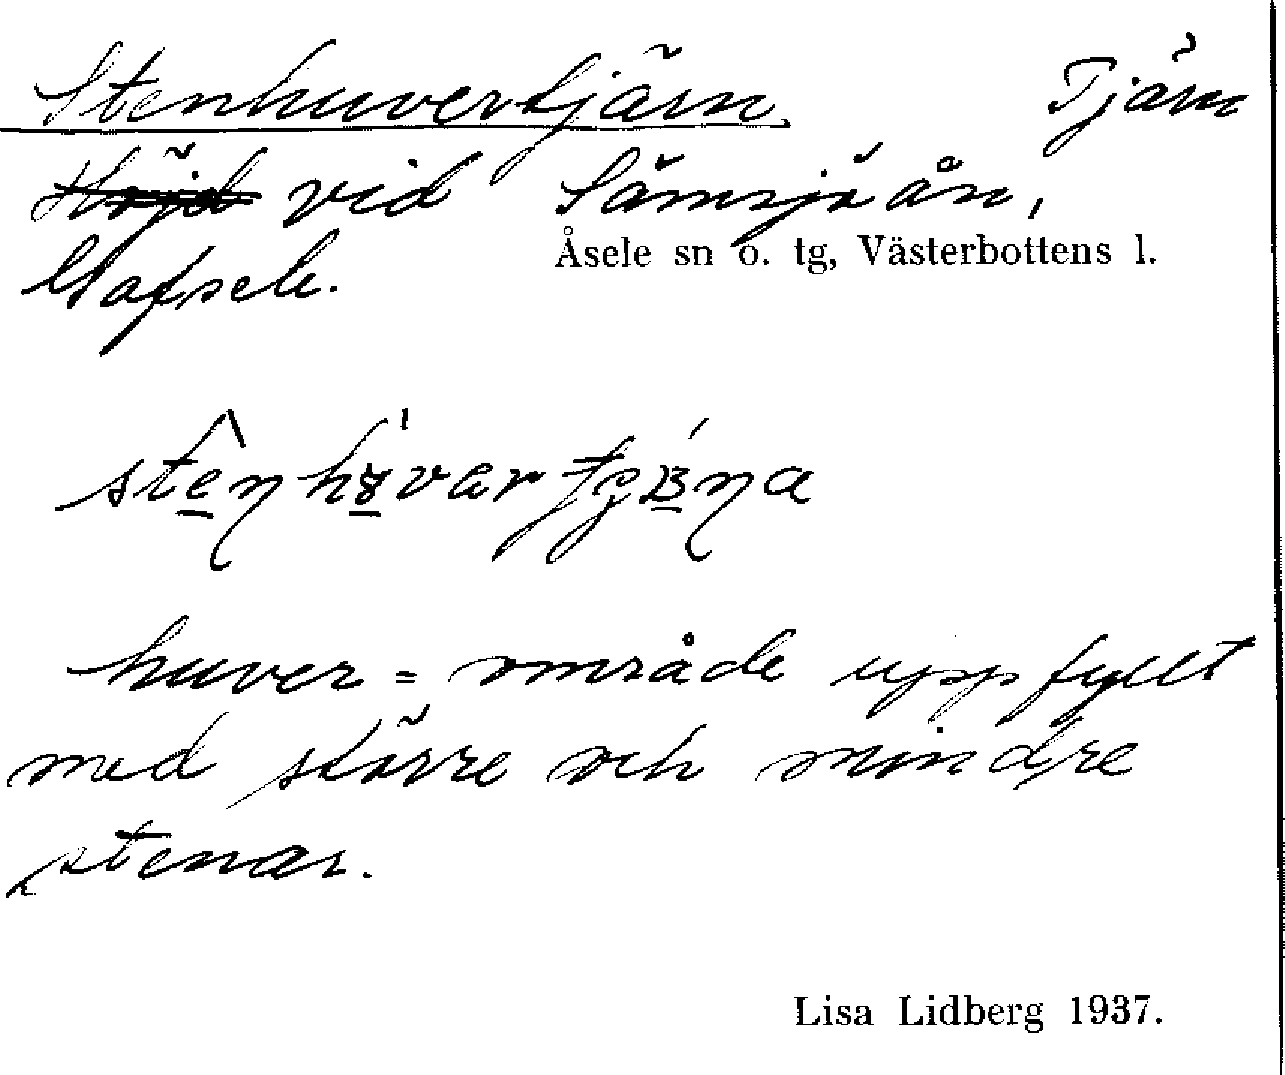 Stenhuvertjärn. Tjärn
Höjd vid Sämsjöån,
Gafsele. Åsele sn o. tg, Västerbottens l.
huver = område uppfyllt
med större och mindre
stenar.
Lisa Lidberg 1937.